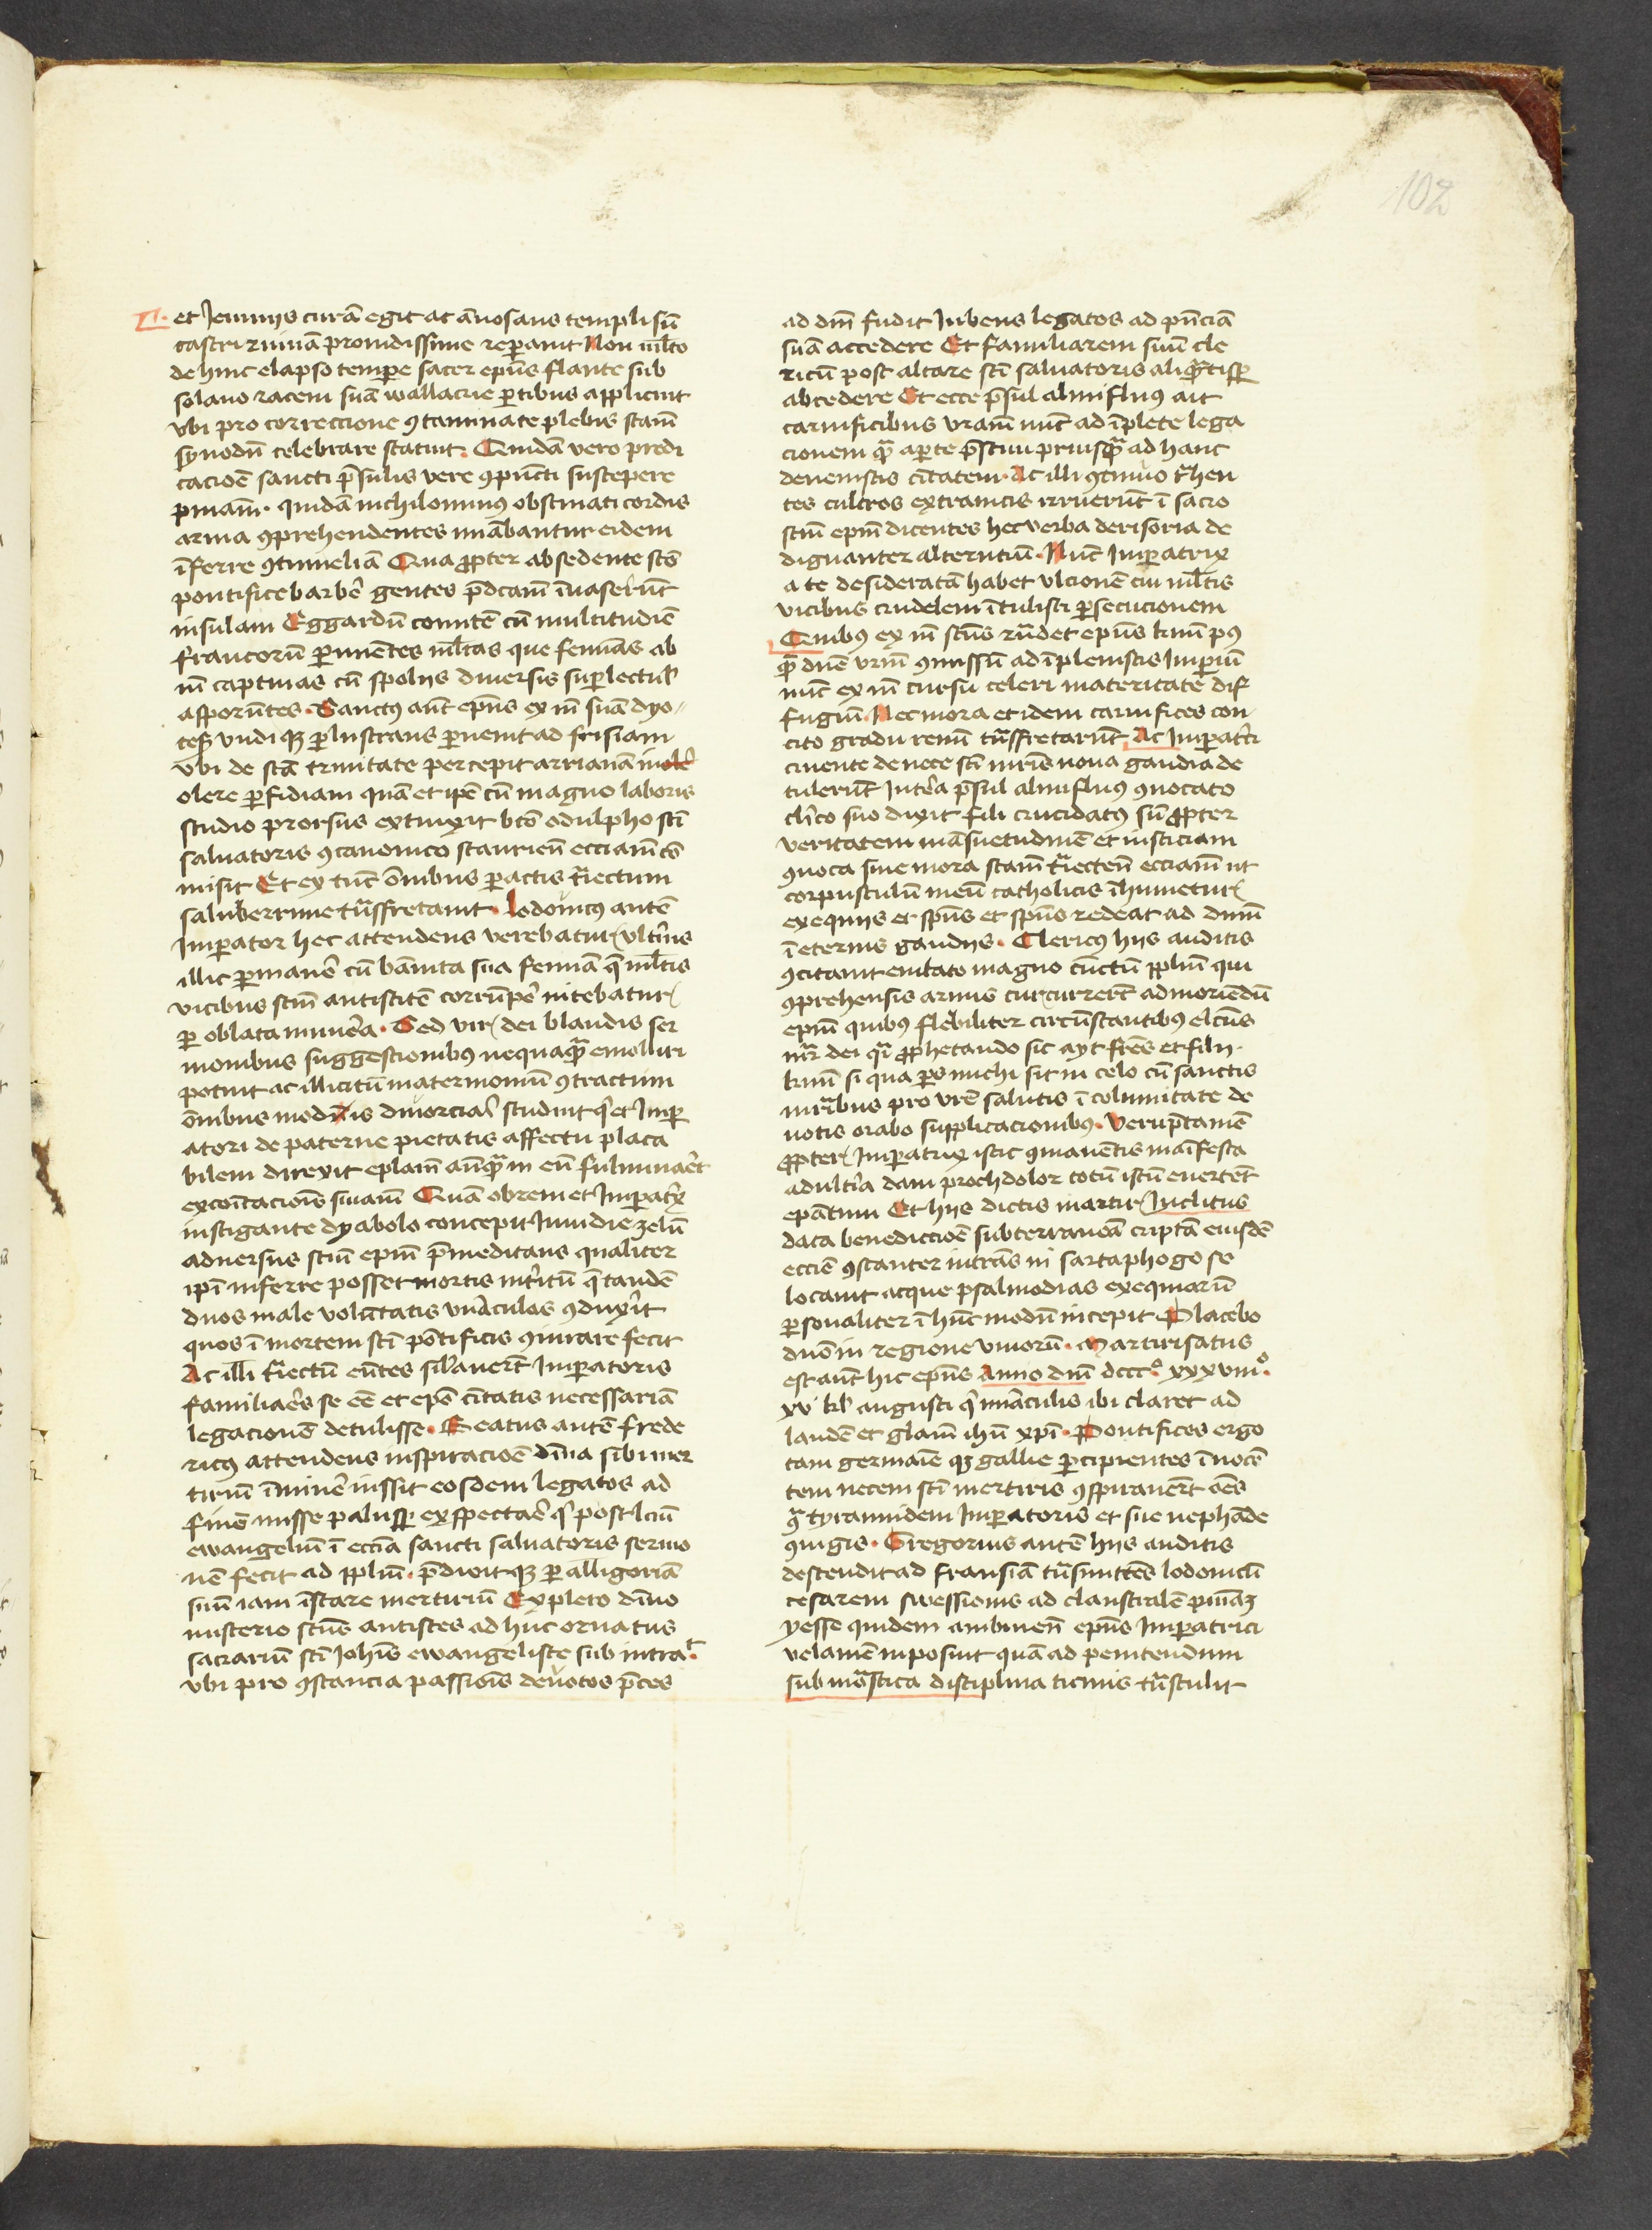 102
et Jeiunijs curā egit ac ānosaus templi sū
castri ruinā prouidissime reꝑauit Non ml̄to
dehinc elapso temꝑe sacer ep̄us flante sub
solano racem suā wallacrie ꝑtibus applicuit
vbi pro correccione ꝯtaminate plebis sc̄am
synodū celebrare statuit. Quidā vero predi
cacioē sancti p̄sulis vere ꝯpūcti suscepere
pn̄iam. quidā nichilominꝰ obstinati cordis
arma ꝯprehendentes minābantur eidem
īferre ꝯtumeliā Qua ꝓpter absedente sc̄o
pontifice barbē gentes p̄dcam īuaserūt
insulam Eggardū comitē cū multitudiē
francorū ꝑimentes ml̄tas que feminas ab
īn captiuas cū spolijs diuersis suꝑlectil'
asporūtes. Sanctꝰ aut̄ ep̄us ex īn suā dyo
ces̄ vndiqꝫ ꝑlustrans ꝑuenit ad frisiam
vbi de sc̄a trinitate percepit arrianā
olere ꝑfidiam quā et ip̄e cū magno laboris
studio prorsus extinxit bt̄o odulpho sc̄i
saluatoris ꝯcanonico staurien̄ eccl̄iam cō
misit Et ex tūc ōnibus ꝑactis t̄iectum
saluberrime trāsfretauit. Lodouicꝰ autē
Imperator hec attendens verebatur vlterius
illic ꝑmanē cū bannita sua femīa q̄ ml̄tis
vicibus sc̄m antistitē corrūpē nitebatur
ꝑ oblata munēa. Sed vir dei blandis ser
monibus suggestionibꝰ nequaqua̅ emolliri
potuit ac illicitū matermoniū ꝯtractum
ōnibus modis diuorciaī studuit qī et Imꝑ
atori de paterne pietatis affectu placa
bilem direxit epl̄am anq̄ua̅ in eū fulminaēt
excōicacioīs suiam̄ Quā obrem et Imꝑatꝯ
instigante dyabolo concepit Inuidie zelū
aduersus sc̄m ep̄m p̄meditans qualiter
ip̄i inferre posset mortis int̄itū q̄ tandē
duos male volūtatis vnāculos ꝯduxit
quos ī mortem sc̄i pōtificis ꝯiurare fecit
Ac illi T̄iectū eūtes silāuerūt Imperatoris
familiaēs se eē et epē citatis necessariā
legacionē detulisse. Beatus autē frede
ricꝰ attendens inspiracioē dīna sibi mer
tirium īminē iussit eosdem legatos ad
finē misse palusꝑ exspectaē qī post leiū
ewangeliū ī eccl̄ia sancti saluatoris sermo
nē fecit ad ppl̄m. p̄dixit qꝫ ꝑ alligoriā
suū iam īstare mertiriū Expleto dīno
misterio sc̄us antistes ad hūc ornatus
sacrariū sc̄i Joh̄is ewangeliste sub intra.t
vbi pro ꝯstancia passiois deuotos p̄ces
ad dn̄m fudit Jubens legatos ad pn̄ciā
suā accedere Et familiarem suū cle
ricū post altare sc̄i saluatoris aliqn̄tisꝑ
abcedere Et ecce p̄sul almifluꝰ ait
carnificibus vr̄am nūc ad īplete lega
cionem qua̅ aꝑte p̄sciui priusqua̅ ad hanc
deuenistis ciutatem. Ac illi ꝯtinuo t̄hen
tes cultros extranctis irruerūt ī sacro
sc̄m ep̄m dicentes hec verba derisoria de
dignanter alterutiū. Nūc Imꝑatrix
a te desideratā habet vlcionē cui ml̄tis
vicibus crudelem ītulisti ꝑsecucionem
Quibꝰ ex īn sc̄us rn̄det ep̄us kimi pꝰ
q̄ dn̄e vrm̄ ꝯmissū ad īplenistis Imꝑiū
nūc ex īn cursu celeri materitate dif
fugiū. Nec mora et idem carnifices con
cito gradu renū trāsfretarūt Ac Imꝑatrici
ciuente de nece sc̄i mr̄is noua gaudia de
tulerūt Intēa p̄sul almifluꝰ ꝯuocato
cl̄ico suo dixit fili crucidatꝰ sū ꝓpter
veritatem māsuetudinē et iusticiam
ꝯuoca sine mora sc̄am t̄iecten̄ eccl̄iam ut
corpusculū meū catholicis īhumetur
exequijs et sp̄us et sp̄us redeat ad dnm̄
ī eternis gaudijs. Clericꝰ hijs auditis
ꝯcitauit emitato magno cūctū ppl̄m qui
ꝯprehensis armis curcurrerūt ad moriendū
ep̄m quibꝰ flebiliter circūstantibꝰ elcūs
mr̄ dei qī ꝓphetando sic ayt fr̄es et filij.
kimi si qua ꝑs michi sit in celo cū sanctis
mr̄ibus pro vr̄e salutis ī columitate de
uotis orabo supplicacionibꝰ. Verumptamē
ꝓpter Imꝑatrix istic ꝯmanentis maīfesta
adult̄ia dam proch dolor totū istū euertēt
ep̄atum Et hijs dictis martir Inclitus
data benediccioē subterraneā criptā eiusdē
eccl̄e ꝯstanter intrās in sartaphogo se
locauit atque psalmodias exequiarū
ꝑsonaliter ī hūc modū incepit Placebo
dn̄o in regione viuorū. Martirisatus
est aut̄ hic ep̄us Anno dn̄i dccc° xxxviii°.
xv kl' augusti qī mirāculis ibi claret ad
laudē et gl̄iam ih̄u xp̄i. Pontifices ergo
tam germaīe qꝫ gallie ꝑcipientes īnocē
tem necem sc̄i mertiris ꝯspirauerūt oēs
ꝯ tyrannidem Imꝑatoris et sue nephāde
ꝯiugis. Gregorius autē hijs auditis
descendit ad fransiā trāsmittēs lodouicū
cesarem swessionis ad claustralē pn̄iaꝫ
yesse quidem ambinen̄ ep̄us Imꝑatrici
velamē inposuit quā ad penitendum
sub mōastica disciplina ticinis trāstulit